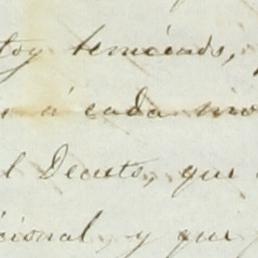 toy temiendo,
s á cada mo
l Decreto, que
cional, y que